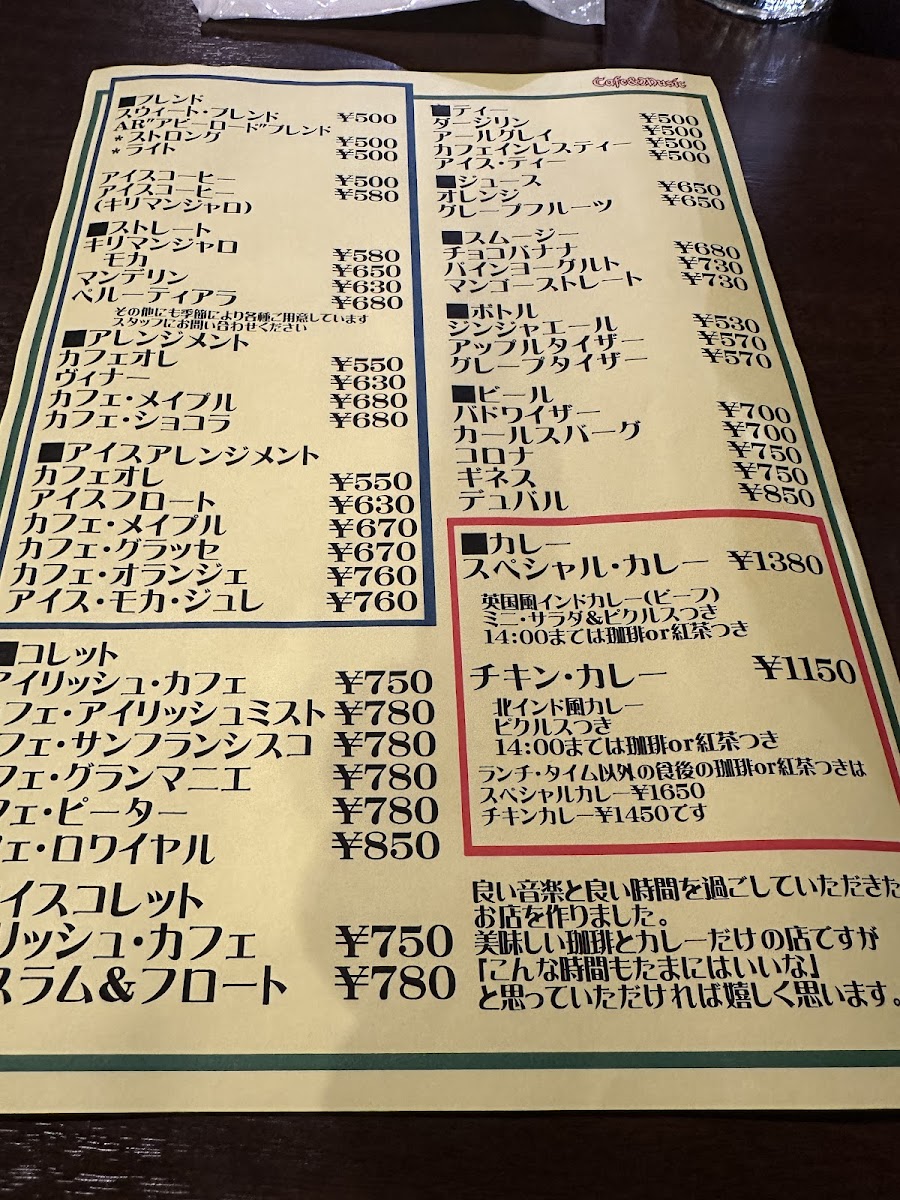 Cafe&Music
■ブレンド
スウィート・ブレンド ¥500
AR"アビーロード"ブレンド
*ストロング ¥500
*ライト ¥500
アイスコーヒー ¥500
アイスコーヒー ¥580
(キリマンジャロ)
■ストレート
キリマンジャロ ¥580
モカ ¥650
マンデリン ¥630
ペルーティアラ ¥680
その他にも季節により各種ご用意しています
スタッフにお問い合わせください
■アレンジメント
カフェオレ ¥550
ヴィナー ¥630
カフェ・メイプル ¥680
カフェ・ショコラ ¥680
■アイスアレンジメント
カフェオレ ¥550
アイスフロート ¥630
カフェ・メイプル ¥670
カフェ・グラッセ ¥670
カフェ・オランジェ ¥760
アイス・モカ・ジュレ ¥760
■コレット
アイリッシュ・カフェ ¥750
フェ・アイリッシュミスト ¥780
フェ・サンフランシスコ ¥780
フェ・グランマニエ ¥780
フェ・ピーター ¥780
フェ・ロワイヤル ¥850
イスコレット
リッシュ・カフェ ¥750
スラム&フロート ¥780
■ティー
ダージリン ¥500
アールグレイ ¥500
カフェインレスティー ¥500
アイス・ティー ¥500
■ジュース
オレンジ ¥650
グレープフルーツ ¥650
■スムージー
チョコバナナ ¥680
パインヨーグルト ¥730
マンゴーストレート ¥730
■ボトル
ジンジャエール ¥530
アップルタイザー ¥570
グレープタイザー ¥570
■ビール
バドワイザー ¥700
カールスバーグ ¥700
コロナ ¥750
ギネス ¥750
デュバル ¥850
■カレー
スペシャル・カレー ¥1380
英国風インドカレー(ビーフ)
ミニ・サラダ&ピクルスつき
14:00までは珈琲or紅茶つき
チキン・カレー ¥1150
北インド風カレー
ピクルスつき
14:00までは珈琲or紅茶つき
ランチ・タイム以外の食後の珈琲or紅茶つきは
スペシャルカレー¥1650
チキンカレー¥1450です
良い音楽と良い時間を過ごしていただきた
お店を作りました。
美味しい珈琲とカレーだけの店ですが
「こんな時間もたまにはいいな」
と思っていただければ嬉しく思います。